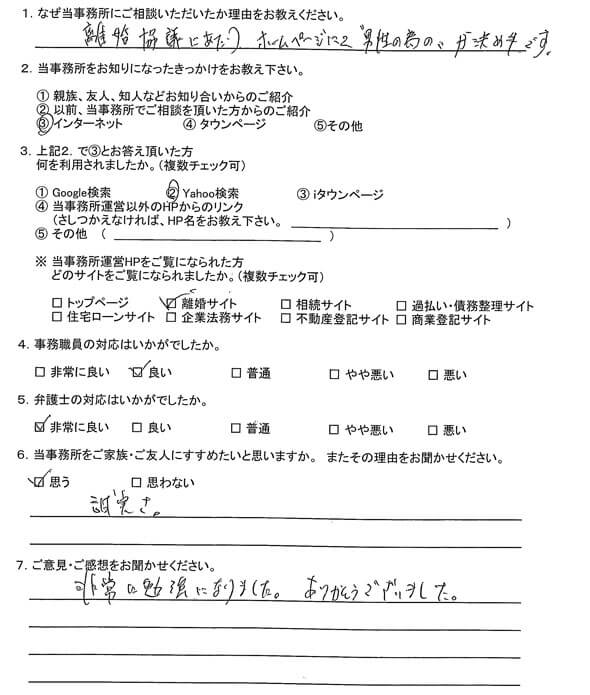 1. なぜ当事務所にご相談いただいたか理由をお教えください。
離婚協議にあたり ホームページにて"男性の為の"が決め手です。
2. 当事務所をお知りになったきっかけをお教え下さい。
① 親族、友人、知人などお知り合いからのご紹介
② 以前、当事務所でご相談を頂いた方からのご紹介
③インターネット ④ タウンページ ⑤その他
3. 上記2. で③とお答え頂いた方
何を利用されましたか。(複数チェック可)
① Google検索 ② Yahoo検索 ③ iタウンページ
④ 当事務所運営以外のHPからのリンク
(さしつかえなければ、HP名をお教え下さい。 )
⑤ その他 ( )
※ 当事務所運営HPをご覧になられた方
どのサイトをご覧になられましたか。(複数チェック可)
□ トップページ ☑ 離婚サイト □ 相続サイト □ 過払い・債務整理サイト
□ 住宅ローンサイト □ 企業法務サイト □ 不動産登記サイト □ 商業登記サイト
4. 事務職員の対応はいかがでしたか。
□ 非常に良い ☑ 良い □ 普通 □ やや悪い □ 悪い
5. 弁護士の対応はいかがでしたか。
☑ 非常に良い □ 良い □ 普通 □ やや悪い □ 悪い
6. 当事務所をご家族・ご友人にすすめたいと思いますか。 またその理由をお聞かせください。
☑ 思う □ 思わない
誠実さ。
7. ご意見・ご感想をお聞かせください。
非常に勉強になりました。 ありがとうございました。